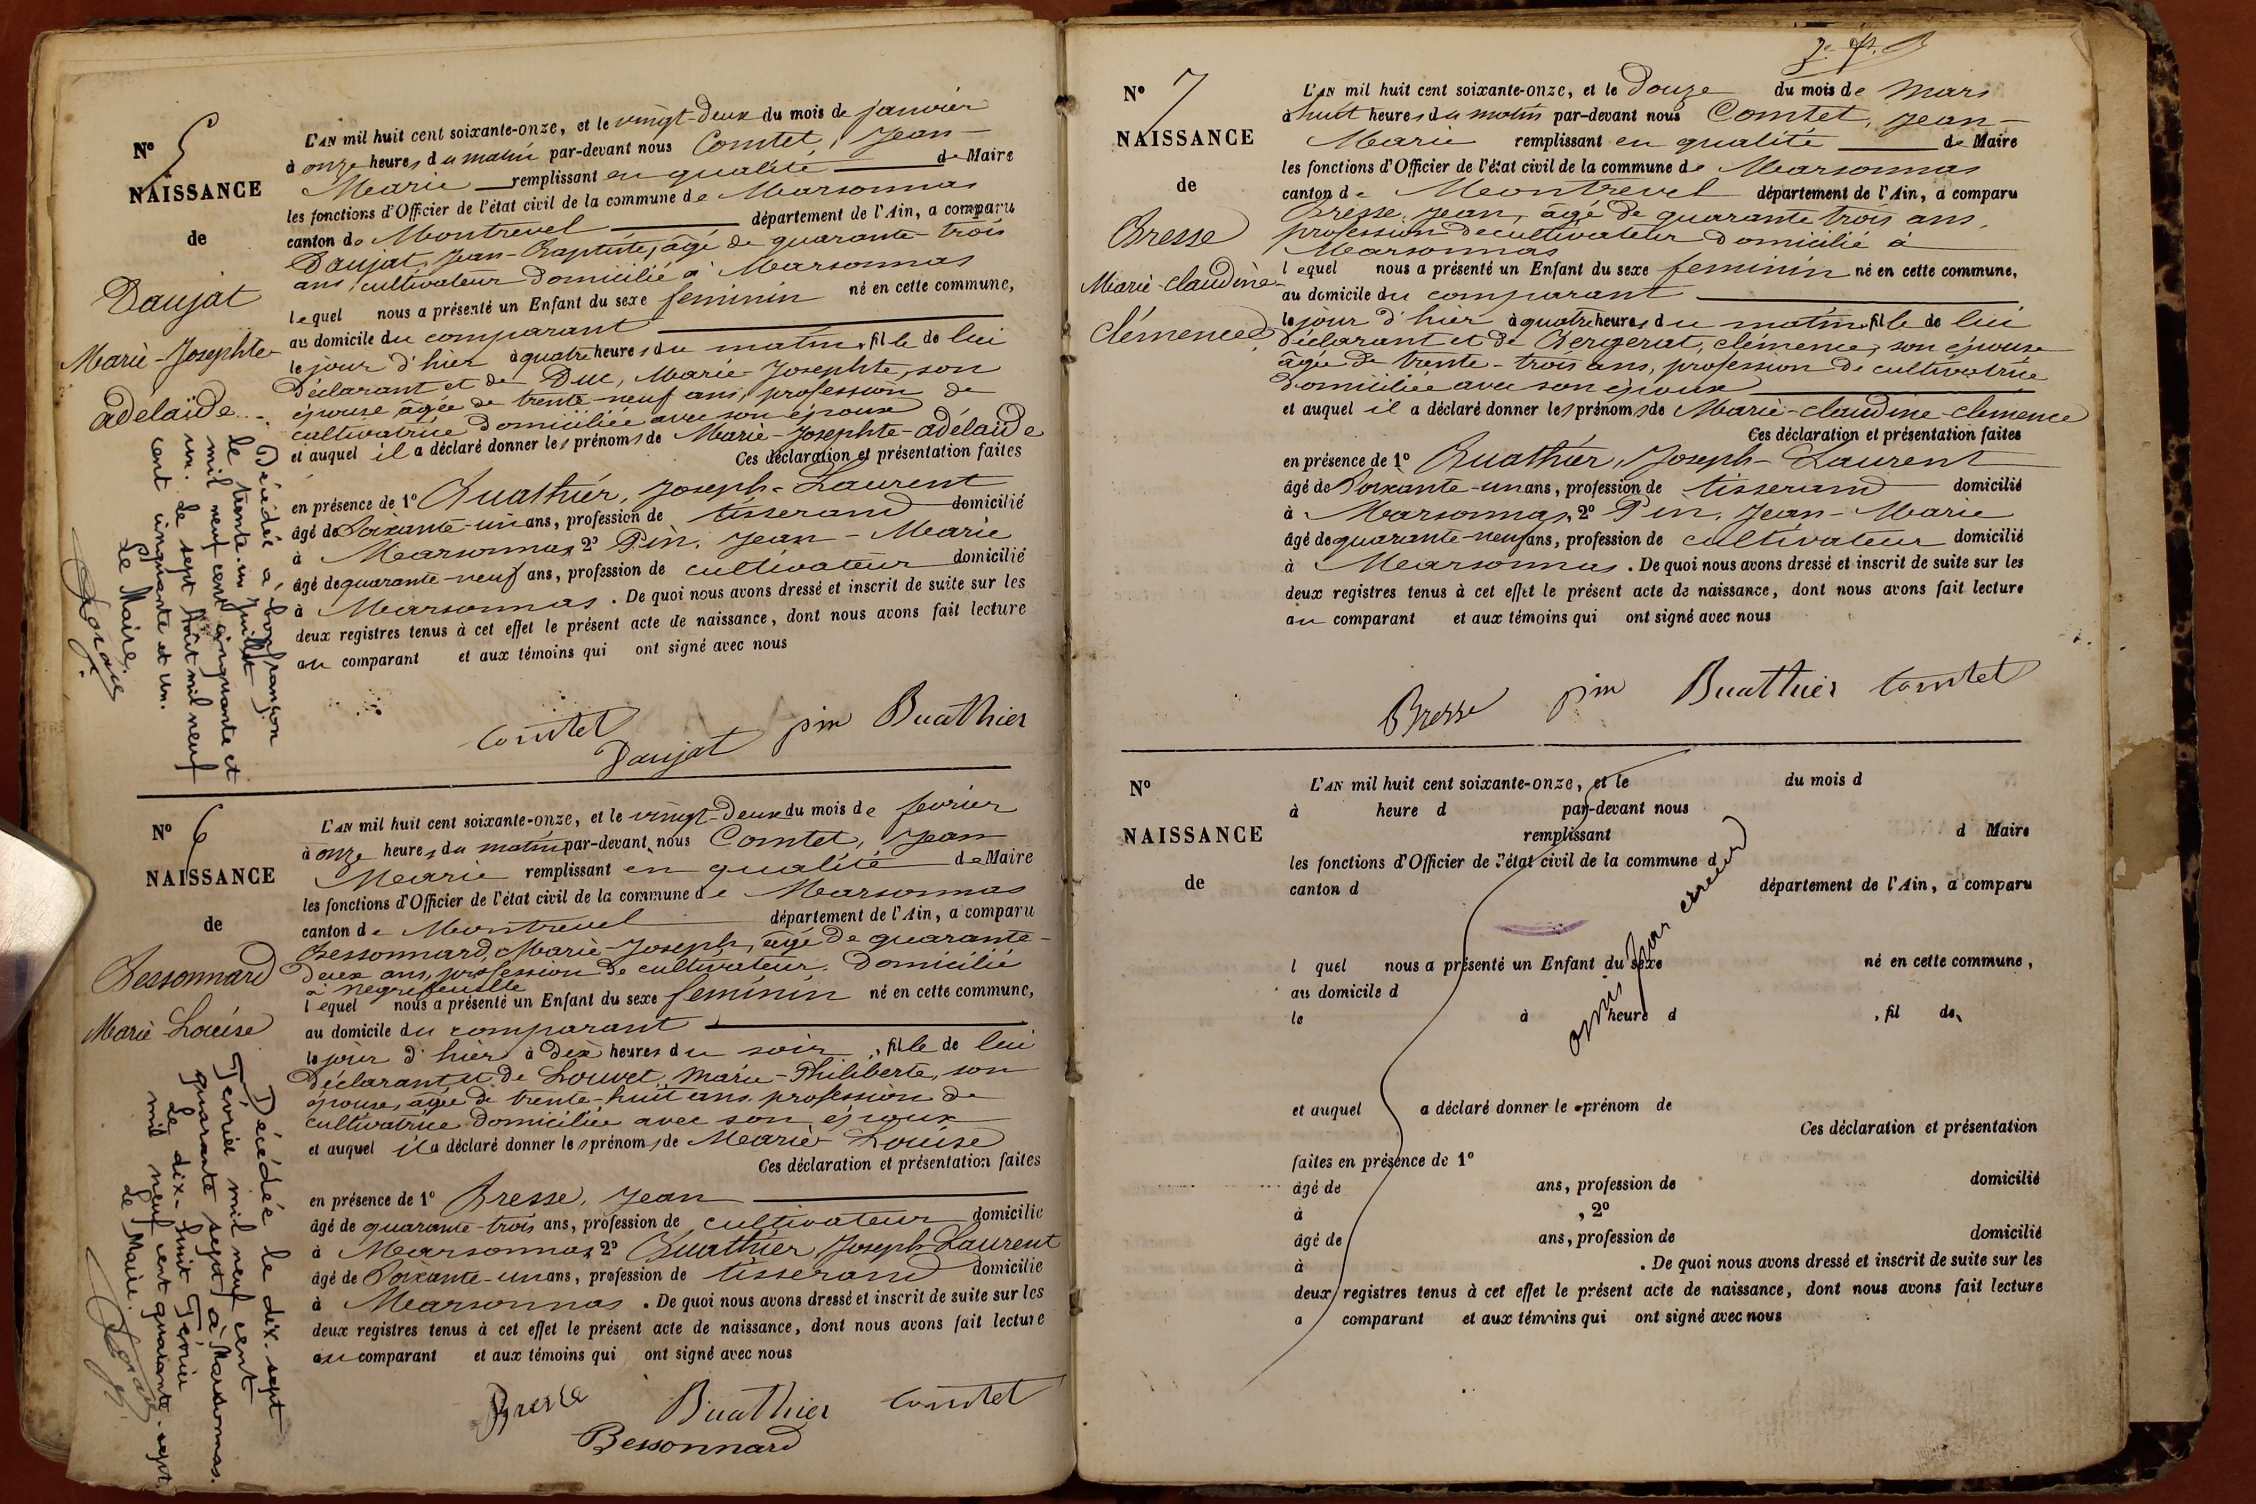 N° 5
NAISSANCE
de
Daujat
Marie-Josephte
adélaïde
L'AN mil huit cent soixante-onze, et le vingt-deux du mois de janvier
à onze heures du matin par-devant nous Comtet, Jean-
Marie remplissant en qualité de Maire
les fonctions d'Officier de l'état civil de la commune de Marsonnas
canton de Montrevel département de l'Ain, a comparu
Daujat, Jean-Baptiste, âgé de quarante-trois
ans, cultivateur domicilié à Marsonnas
lequel nous a présenté un Enfant du sexe feminin né en cette commune,
au domicile du comparant
le jour d'hier à quatre heures du matin, fille de lui
déclarant et de Duc, Marie-Josephte, son
épouse âgée de trente-neuf ans, profession de
cultivatrice domiciliée avec son époux
et auquel il a déclaré donner les prénoms de Marie-Josephte-adélaïde
Ces déclaration et présentation faites
en présence de 1° Buathier, Joseph-Laurent
âgé de Soixante-un ans, profession de tisserand domicilié
à Marsonnas, 2° Pin, Jean-Marie
âgé de quarante-neuf ans, profession de cultivateur domicilié
à Marsonnas. De quoi nous avons dressé et inscrit de suite sur les
deux registres tenus à cet effet le présent acte de naissance, dont nous avons fait lecture
au comparant et aux témoins qui ont signé avec nous
Comtet
Daujat pin Buathier
Décédée à Confrançon
le trente-un juillet
mil neuf cent cinquante et
un. de sept Août mil neuf
cent cinquante et un.
Le Maire,
N° 6
NAISSANCE
de
Bessonnard
Marie Louise
L'AN mil huit cent soixante-onze, et le vingt-deux du mois de fevrier
à onze heures du matin par-devant nous Comtet, Jean
Marie remplissant en qualité de Maire
les fonctions d'Officier de l'état civil de la commune de Marsonnas
canton de Montrevel département de l'Ain, a comparu
Bessonnard, Marie-Joseph, âgé de quarante-
deux ans, profession de cultivateur, domicilié
à
lequel nous a présenté un Enfant du sexe feminin né en cette commune,
au domicile du comparant
le jour d'hier à dix heures du soir, fille de lui
déclarant et de Louvet, Marie-Philiberte, son
épouse, âgée de trente-huit ans, profession de
cultivatrice domiciliée avec son époux
et auquel il a déclaré donner les prénoms de Marie-Louise
Ces déclaration et présentation faites
en présence de 1° Bresse, Jean
âgé de quarante-trois ans, profession de cultivateur domicilié
à Marsonnas, 2° Buathier, Joseph-Laurent
âgé de Soixante-un ans, profession de tisserand domicilié
à Marsonnas. De quoi nous avons dressé et inscrit de suite sur les
deux registres tenus à cet effet le présent acte de naissance, dont nous avons fait lecture
au comparant et aux témoins qui ont signé avec nous
Bresse Buathier Comtet
Bessonnard
Décédée le dix-sept
Février mil neuf cent
quarante sept à Marsonnas.
Le dix-huit Février
mil neuf cent quarante-sept
Le Maire.
N° 7
NAISSANCE
de
Bresse
Marie-claudine-
clémence
L'AN mil huit cent soixante-onze, et le Douze du mois de Mars
à huit heures du matin par-devant nous Comtet, Jean-
Marie remplissant en qualité de Maire
les fonctions d'Officier de l'état civil de la commune de Marsonnas
canton de Montrevel département de l'Ain, a comparu
Bresse, Jean, âgé de quarante trois ans,
profession de cultivateur domicilié à
Marsonnas
lequel nous a présenté un Enfant du sexe feminin né en cette commune,
au domicile du comparant
le jour d'hier à quatre heures du matin, fille de lui
déclarant et de Bergerat, clémence, son épouse
âgée de trente-trois ans, profession de cultivatrice
domiciliée avec son époux
et auquel il a déclaré donner les prénoms de Marie-claudine-clémence
Ces déclaration et présentation faites
en présence de 1° Buathier, Joseph-Laurent
âgé de Soixante-un ans, profession de tisserand domicilié
à Marsonnas, 2° Pin, Jean-Marie
âgé de quarante-neuf ans, profession de cultivateur domicilié
à Marsonnas. De quoi nous avons dressé et inscrit de suite sur les
deux registres tenus à cet effet le présent acte de naissance, dont nous avons fait lecture
au comparant et aux témoins qui ont signé avec nous
Bresse pin Buathier Comtet
N°
NAISSANCE
de
L'AN mil huit cent soixante-onze, et le du mois d
à heure d par-devant nous
remplissant d Maire
les fonctions d'Officier de l'état civil de la commune d
canton d département de l'Ain, a comparu
l quel nous a présenté un Enfant du sexe né en cette commune,
au domicile d
le à heure d , fil de
et auquel a déclaré donner le prénom de
Ces déclaration et présentation
faites en présence de 1°
âgé de ans, profession de domicilié
à , 2°
âgé de ans, profession de domicilié
à . De quoi nous avons dressé et inscrit de suite sur les
deux registres tenus à cet effet le présent acte de naissance, dont nous avons fait lecture
a comparant et aux témoins qui ont signé avec nous
omis par erreur